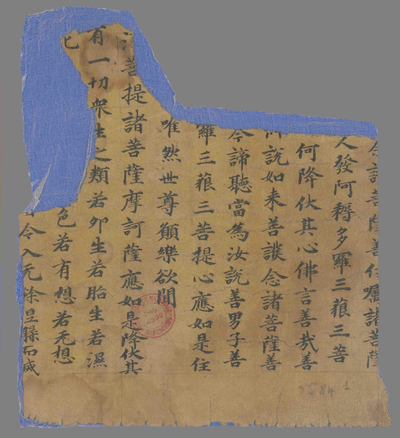 念諸菩薩善付囑諸菩薩
人發阿耨多羅三藐三菩
何降伏其心佛言善哉善
所說如来善護念諸菩薩善
今諦聽當為汝說善男子善
羅三藐三菩提心應如是住
唯然世尊願樂欲聞
菩提諸菩薩摩訶薩應如是降伏其
有一切眾生之類若卵生若胎生若濕
色若有想若无想
令入无餘涅槃而滅